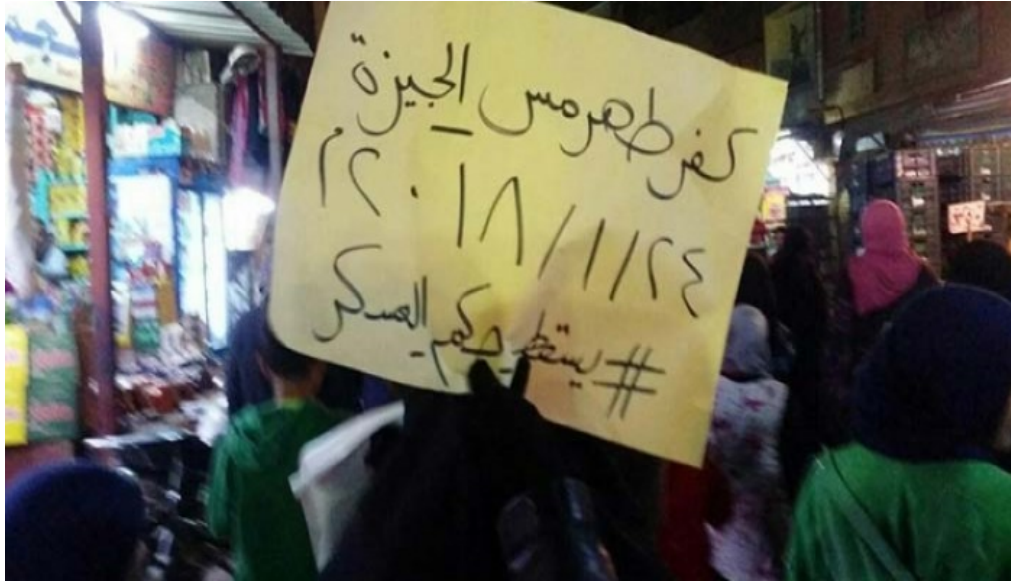 كفر طهرمس الجيزة
٢٤/١/٢٠١٨م
#يسقط_حكم_العسكر